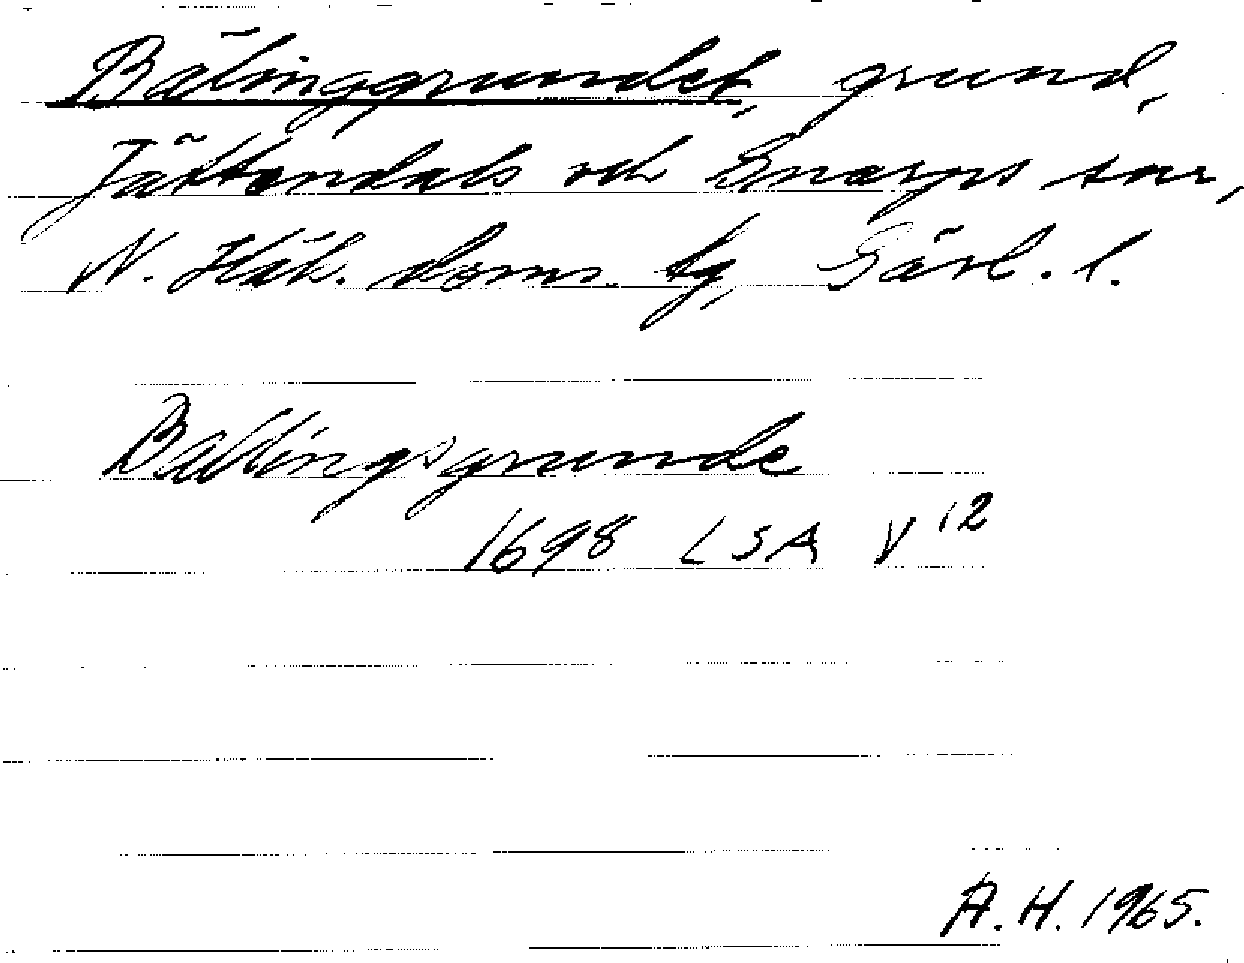 Bälinggrundet, grund,
Jättendals och Gnarps snr,
N. Häls. doms. tg, Gävl. l.
Ballingsgrunde
1698 LSA V 12
A. H. 1965.